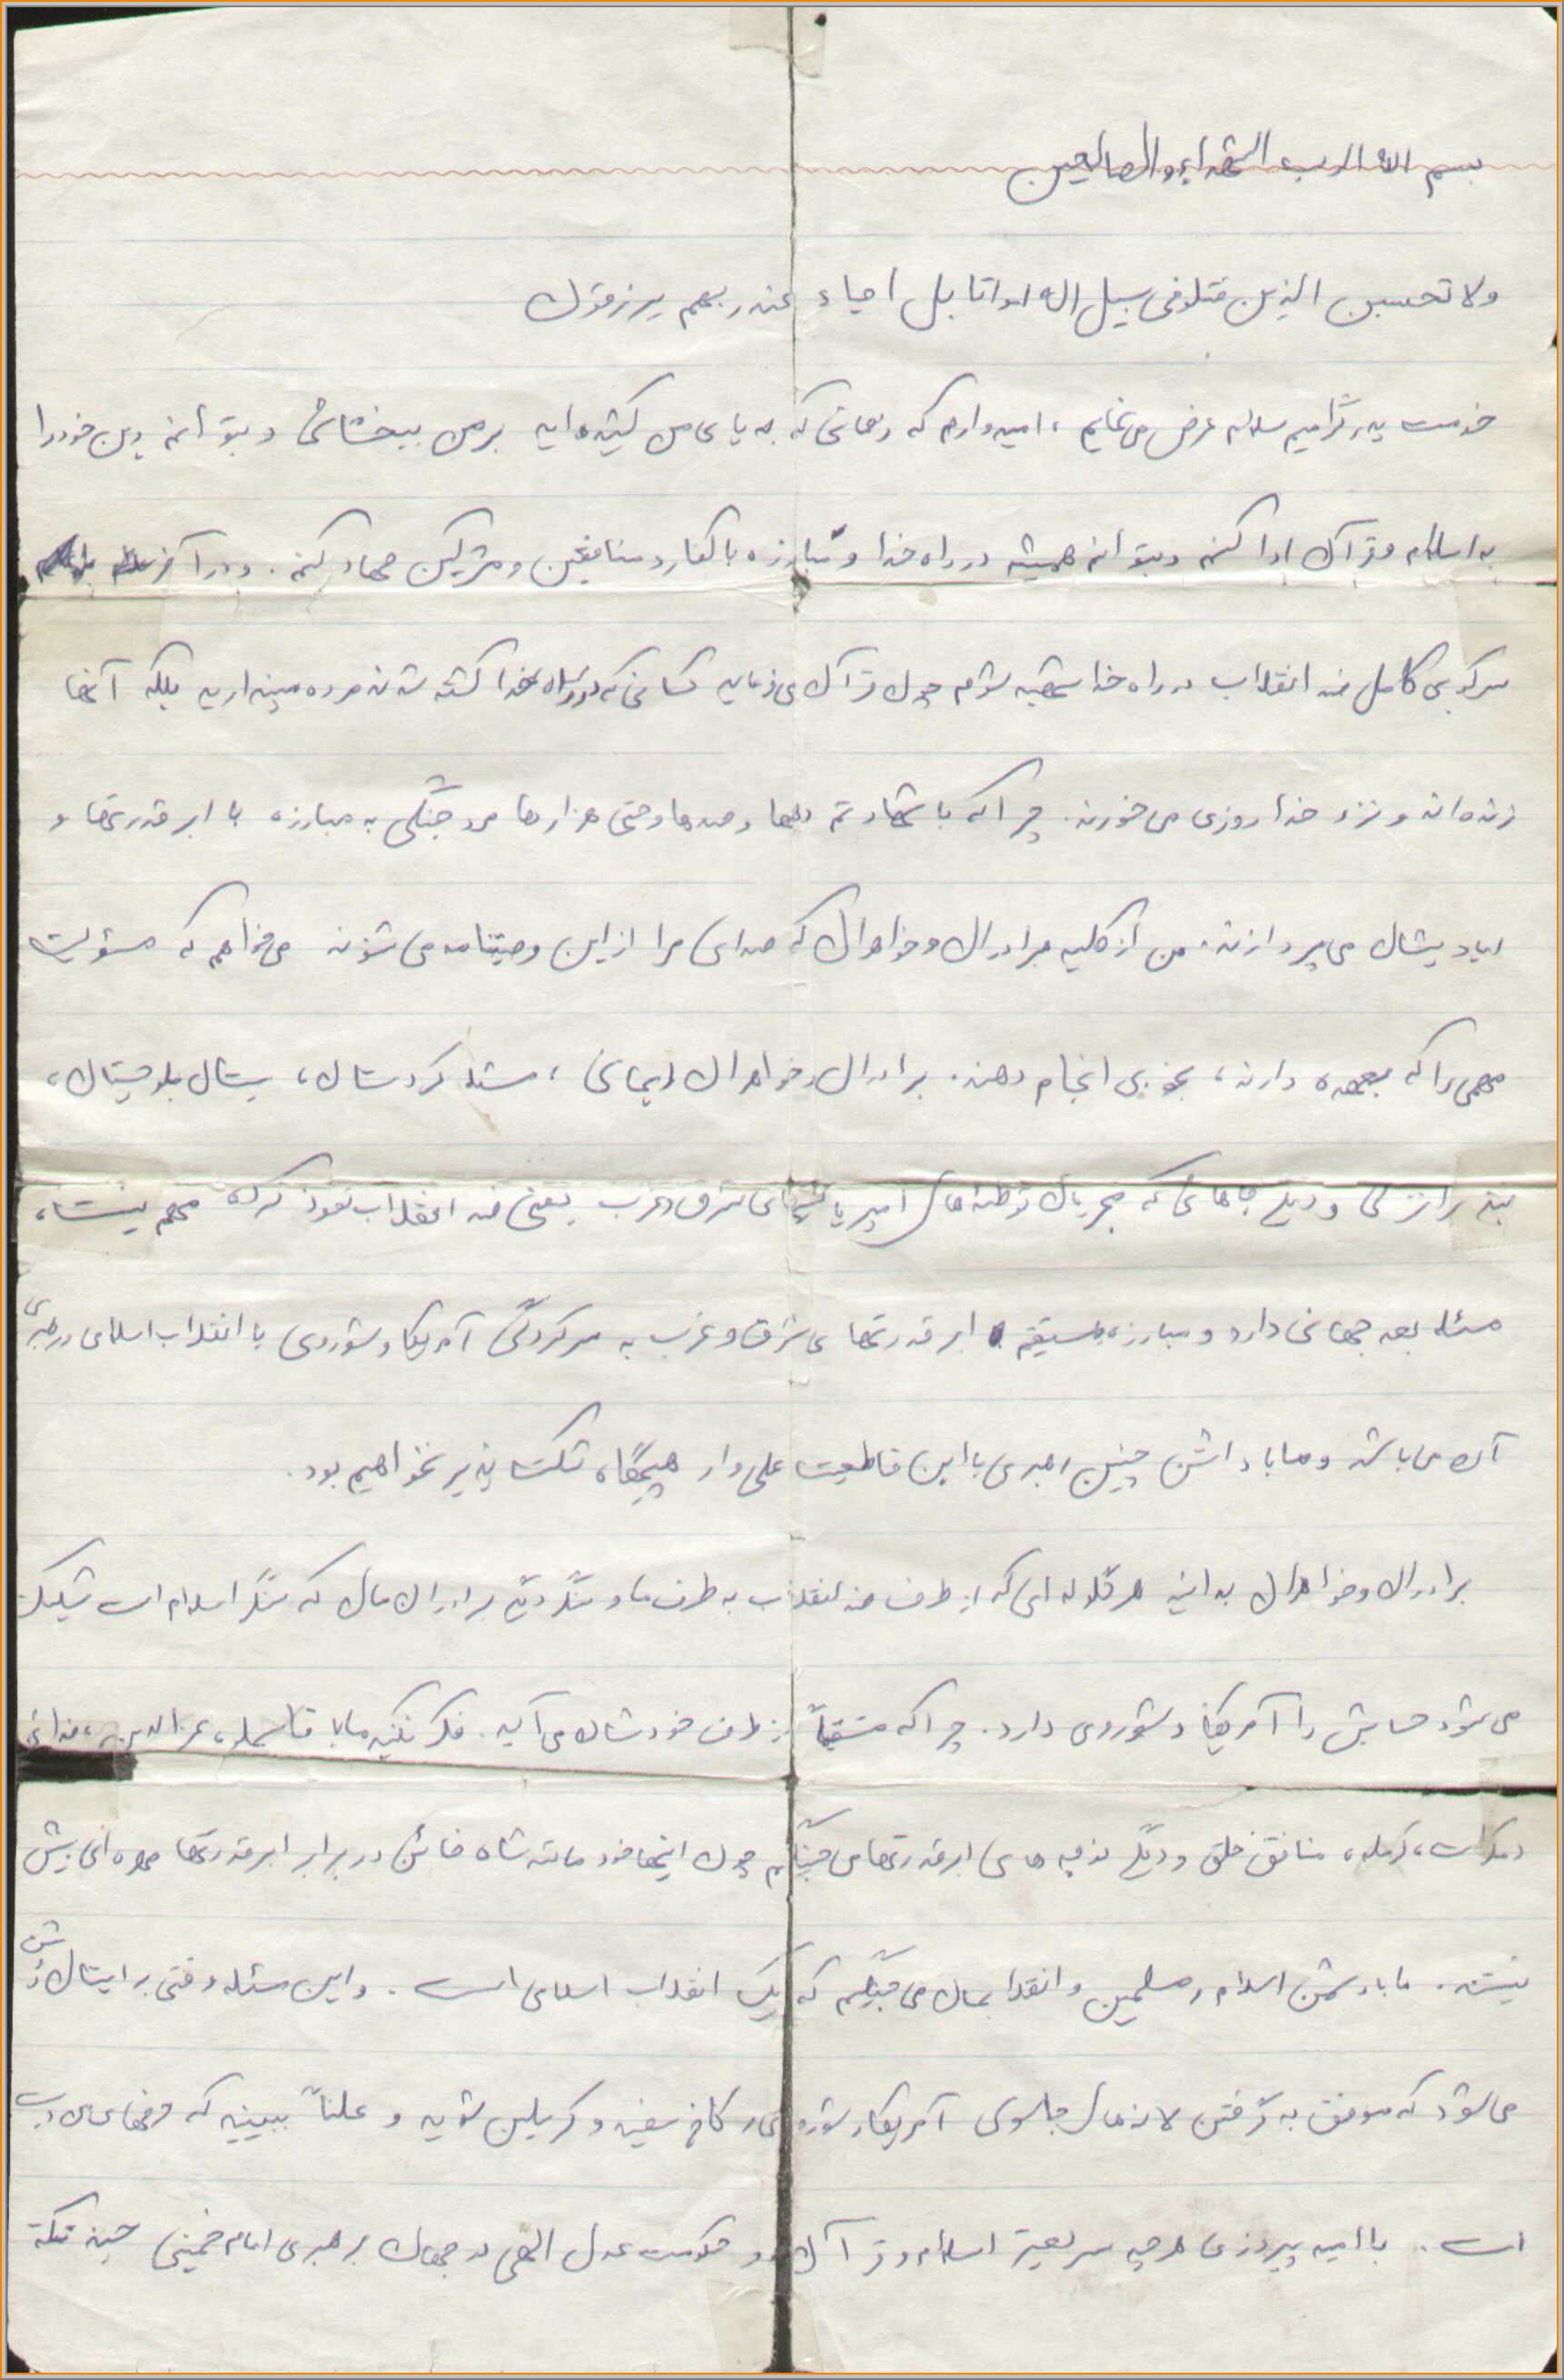 بسم الله الرب الشهداء والصالحین
ولا تحسبن الذین قتلو فی سبیل الله امواتا بل احیاء عند ربهم یرزقون
خدمت پدر گرامیم سلام عرض می‌نمایم، امیدوارم که زحماتی که به پای من کشیده‌اید بر من ببخشائی و بتوانم دین خود را
به اسلام و قرآن ادا کنم و بتوانم همیشه در راه خدا و مبارزه با کفار و منافقین و مشرکین جهاد کنم. و در آخر
سرکوبی کامل ضد انقلاب در راه خدا شهید شوم چون قرآن می‌فرماید کسانی که در راه خدا کشته شدند مرده مپندارید بلکه آنها
زنده‌اند و نزد خدا روزی می‌خورند. چرا که با شهادتم دهها و صدها و حتی هزارها مرد جنگی به مبارزه با ابرقدرتها و
ایادیشان می‌پردازند. من از کلیه برادران و خواهران که صدای مرا از این وصیتنامه می‌شنوند می‌خواهم که مسئولیت
مهمی را که بعهده دارند، بخوبی انجام دهند. برادران و خواهران ایمانی، مسئله کردستان، سیستان بلوچستان،
بندر انزلی و دیگر جاهائی که مجریان توطئه‌های امپریالیستهای شرق و غرب یعنی ضد انقلاب نفوذ کرده مهم نیست،
مسئله بعد جهانی دارد و مبارزه مستقیم ابرقدرتهای شرق و غرب به سرکردگی آمریکا و شوروی با انقلاب اسلامی و رهبری
آن می‌باشد و ما با داشتن چنین رهبری با این قاطعیت علی‌وار هیچگاه شکست پذیر نخواهیم بود.
برادران و خواهران بدانید هر گلوله‌ای که از طرف ضد انقلاب به طرف ما و سنگر دیگر برادرانمان که سنگر اسلام است شلیک
می‌شود حسابش را آمریکا و شوروی دارد. چرا که مستقیماً از طرف خودشان می‌آید. فکر نکنید ما با قاسملو، عزالدین، فدائی
دمکرات، کومله، منافق خلق و دیگر نوچه‌های ابرقدرتها می‌جنگیم چون اینها خود مانند شاه خائن در برابر ابرقدرتها مهره‌ای بیش
نیستند. ما با دشمن اسلام و مسلمین و انقلابمان می‌جنگیم که یک انقلاب اسلامی است. و این مسئله وقتی برایتان روشن
می‌شود که موفق به گرفتن لانه‌های جاسوسی آمریکا و شوروی در کاخ سفید و کرملین شوید و علناً ببینید که حرفهای من درست
است. با امید پیروزی هر چه سریعتر اسلام و قرآن و حکومت عدل الهی در جهان برهبری امام خمینی چند نکته